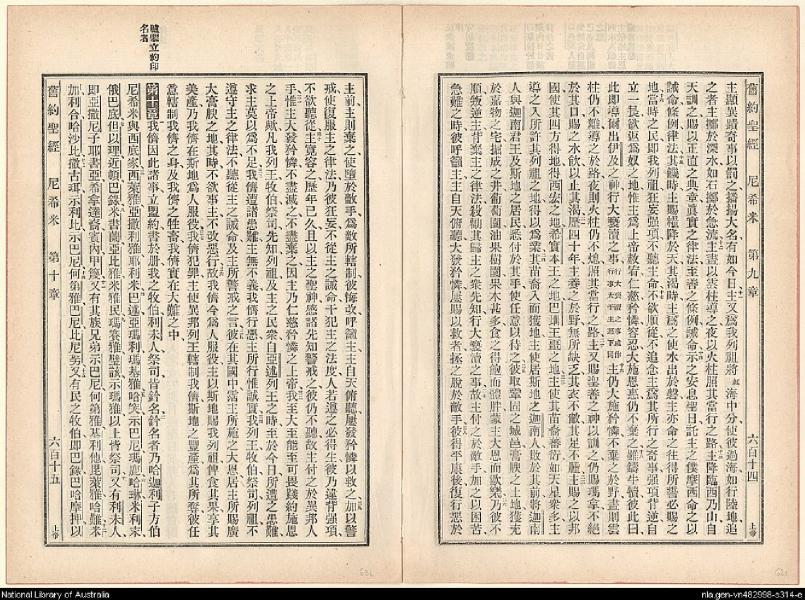 舊約聖經 尼希米 第九章 六百十四 上帝
主顯異蹟奇事以罰之播揚大名有如今日主又爲我列祖將海中分使彼過海如行陸地追
之者主擲於深水如石擲於急流主晝以雲柱導之夜以火柱照其當行之路主降臨西乃山自
天訓之賜以正直之典章眞實之律法至善之條例誡命示之安息聖日託主之僕摩西命之以
誡命條例律法其饑時主賜糧降於天其渴時主爲之使水出於磐主亦命之往得所誓必賜之
地當時之民即我列祖狂妄強項不聽主命不欲順從不追念主爲其所行之奇事強項背逆自
立一長欲返爲奴之地惟主爲上帝赦宥仁慈矜憐容忍大施恩惠仍不棄之雖鑄牛犢彼此曰
此即導爾出伊及之神行大褻瀆之事主仍大施矜憐不棄之於野晝則雲
柱仍不離導之於路夜則火柱仍不熄照其當行之路主又賜聖善之神以訓之仍賜瑪拿不絕
於其口賜之水飲以止其渴歷四十年主養之於野無所缺乏其衣不敝其足不腫主賜之以邦
國使其四方得地得西宏之地希實本王之地巴珊王噩之地主使其苗裔蕃衍如天星衆多主
導之入所許其列祖之地得以爲業其苗裔入而獲地主使居斯地之迦南人敗於其前將迦南
人與迦南君王及斯地之居民悉付於其手使任意以待之彼取鞏固之城邑膏腴之土地獲充
於嘉物之宅掘成之井葡萄園油果樹園果木甚多食之得飽而體胖蒙主大恩而歡樂乃彼不
順叛逆主背棄主之律法殺勸其歸主之衆先知行大褻瀆之事故主付之於敵手加之以困苦
急難之時彼呼籲主主自天俯聽大發矜憐屢賜以救者拯之脫於敵手彼得平康後復行惡於
主前主則棄之使墮於敵手爲敵所轄制彼悔改呼籲主主自天俯聽屢發矜憐以救之加以警
戒使復服主之律法乃彼狂妄不從主之誡命干犯主之法度人若遵之必得生彼乃違背強項
不欲聽從主寬容之歷年已久且以主之聖神感諸先知警戒之彼仍不聽故主付之於異邦人
手惟主大發矜憐不盡滅之不盡棄之因主乃仁慈矜憐之上帝我至大至能至可畏踐約施恩
之上帝歟凡我列王牧伯祭司先知列祖及主之民衆自亞述列王之時至於今日所遭之患難
求主莫以爲不足我儕遭諸患難主無不義我儕行惡主所行惟誠實我列王牧伯祭司列祖不
遵守主之律法不聽從主之誡命及主所警戒之言彼在其國中當主所施之大恩居主所賜廣
大膏腴之地其時不欲事主不改惡行故我儕今爲人服役主以斯地賜我列祖俾食其果享其
美產乃我儕在斯地爲人服役我儕犯罪主使異邦列王轄制我儕斯地之豐產爲其所奪彼任
意轄制我儕之身及我儕之牲畜我儕實在大難之中
第十章 我儕因此諸事立盟約書於册我之牧伯利未人祭司皆鈐名鈐名者乃哈迦利子方伯
尼希米與西底家西萊雅亞撒利雅耶利米巴施戶亞瑪利瑪基雅哈突示巴尼瑪鹿哈琳米利末
加利合哈沙比撒古珥示利比示巴尼何第雅巴尼比尼努又有民之牧伯即巴錄巴哈摩押以
舊約聖經 尼希米 第十章 六百十五 上帝
National Library of Australia
nla.gen-vn482998-s314-e